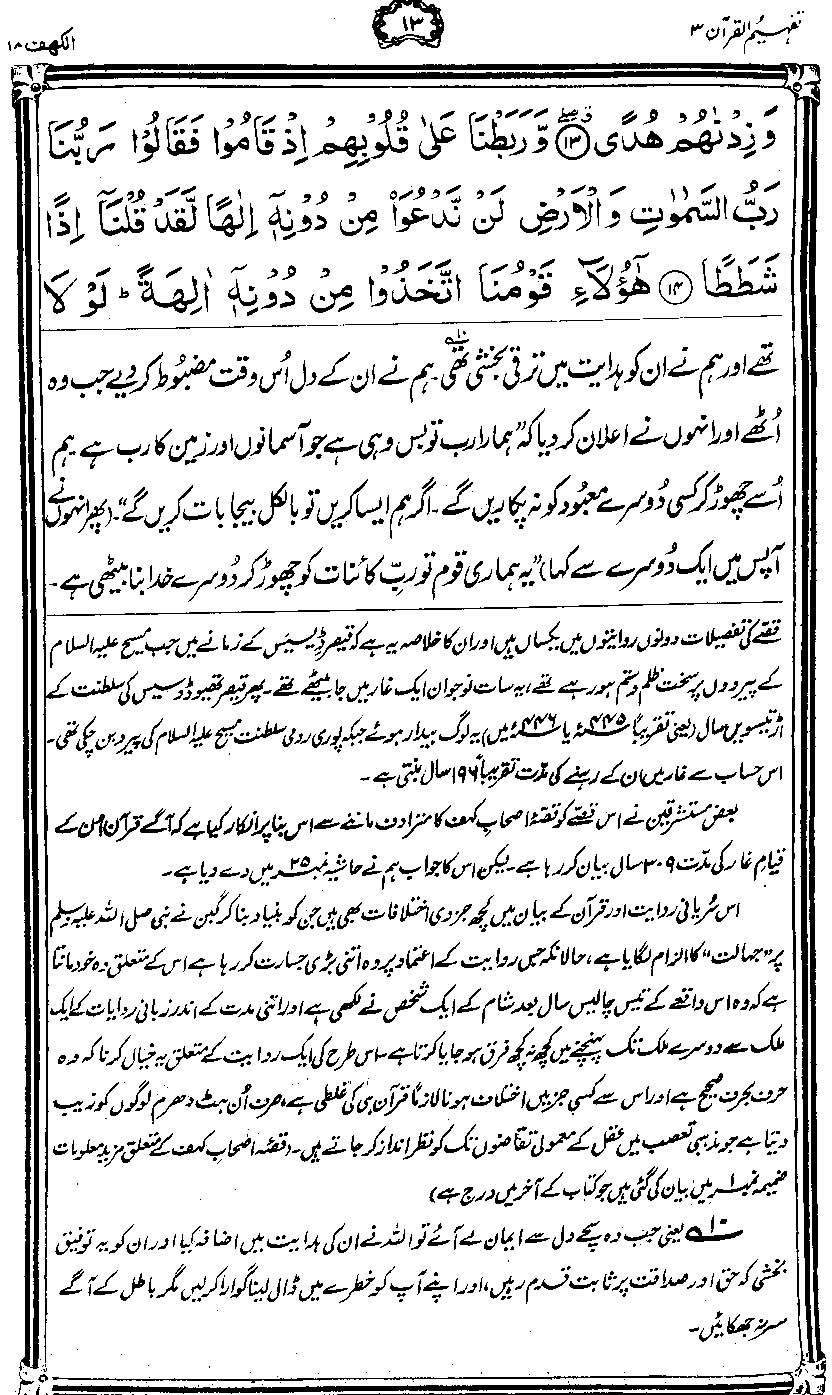 تفہیم القرآن ۳
۱۳
الکہف ۱۸
وَزِدْنٰهُمْ هُدًى ﴿۱۳﴾ وَّرَبَطْنَا عَلٰى قُلُوْبِهِمْ اِذْ قَامُوْا فَقَالُوْا رَبُّنَا
رَبُّ السَّمٰوٰتِ وَالْاَرْضِ لَنْ نَّدْعُوَا۟ مِنْ دُوْنِهٖۤ اِلٰهًا لَّقَدْ قُلْنَاۤ اِذًا
شَطَطًا ﴿۱۴﴾ هٰۤؤُلَآءِ قَوْمُنَا اتَّخَذُوْا مِنْ دُوْنِهٖۤ اٰلِهَةً ؕ لَوْ لَا
تھے اور ہم نے ان کو ہدایت میں ترقی بخشی تھی۱۰۔ ہم نے ان کے دل اُس وقت مضبوط کر دیے جب وہ
اُٹھے اور انہوں نے اعلان کر دیا کہ ”ہمارا رب تو بس وہی ہے جو آسمانوں اور زمین کا رب ہے ہم
اُسے چھوڑ کر کسی دُوسرے معبود کو نہ پکاریں گے۔ اگر ہم ایسا کریں تو بالکل بیجا بات کریں گے“۔ (پھر انہوں نے
آپس میں ایک دُوسرے سے کہا) ”یہ ہماری قوم تو ربِّ کائنات کو چھوڑ کر دُوسرے خدا بنا بیٹھی ہے۔
قصے کی تفصیلات دونوں روایتوں میں یکساں ہیں اور ان کا خلاصہ یہ ہے کہ قیصر ڈیسیس کے زمانے میں جب مسیح علیہ السلام
کے پیرووں پر سخت ظلم و ستم ہو رہے تھے، یہ سات نوجوان ایک غار میں جا بیٹھے تھے۔ پھر قیصر تھیوڈوسیس کی سلطنت کے
اڑتیسویں سال (یعنی تقریباً ۴۴۵ء یا ۴۴۶ء میں) یہ لوگ بیدار ہوئے جبکہ پوری رومی سلطنت مسیح علیہ السلام کی پیرو بن چکی تھی۔
اس حساب سے غار میں ان کے رہنے کی مدّت تقریباً ۱۹۶ سال بنتی ہے۔
بعض مستشرقین نے اس قصّے کو قصّۂ اصحابِ کہف کا مترادف ماننے سے اس بنا پر انکار کیا ہے کہ آگے قرآن ان کے
قیامِ غار کی مدّت ۳۰۹ سال بیان کر رہا ہے۔ لیکن اس کا جواب ہم نے حاشیہ نمبر ۲۵ میں دے دیا ہے۔
اس سُریانی روایت اور قرآن کے بیان میں کچھ جزوی اختلافات بھی ہیں جن کو بنیاد بنا کر گبن نے نبی صلی اللہ علیہ وسلم
پر ”جہالت“ کا الزام لگایا ہے، حالانکہ جس روایت کے اعتماد پر وہ اتنی بڑی جسارت کر رہا ہے اس کے متعلق وہ خود مانتا
ہے کہ وہ اس واقعے کے تیس چالیس سال بعد شام کے ایک شخص نے لکھی ہے اور اتنی مدت کے اندر زبانی روایات کے ایک
ملک سے دوسرے ملک تک پہنچنے میں کچھ نہ کچھ فرق ہو جایا کرتا ہے۔ اس طرح کی ایک روایت کے متعلق یہ خیال کرنا کہ وہ
حرف بحرف صحیح ہے اور اس سے کسی جز میں اختلاف ہونا لازماً قرآن ہی کی غلطی ہے، صرف اُن ہٹ دھرم لوگوں کو زیب
دیتا ہے جو مذہبی تعصب میں عقل کے معمولی تقاضوں تک کو نظر انداز کر جاتے ہیں۔ (قصّۂ اصحابِ کہف کے متعلق مزید معلومات
ضمیمہ نمبر ۱ میں بیان کی گئی ہیں جو کتاب کے آخر میں درج ہے)
۱۰ یعنی جب وہ سچے دل سے ایمان لے آئے تو اللہ نے ان کی ہدایت میں اضافہ کیا اور ان کو یہ توفیق
بخشی کہ حق اور صداقت پر ثابت قدم رہیں، اور اپنے آپ کو خطرے میں ڈال لینا گوارا کر لیں مگر باطل کے آگے
سر نہ جھکائیں۔